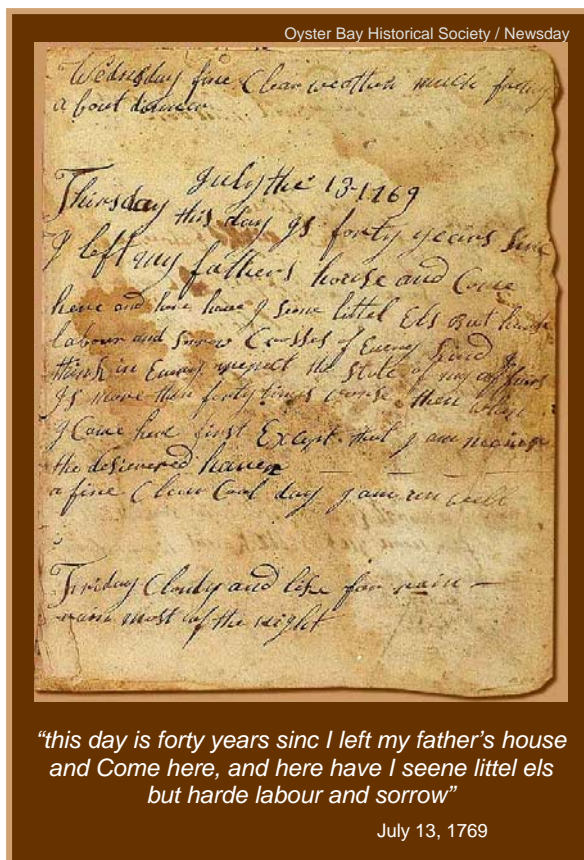 Oyster Bay Historical Society / Newsday
Wednsday fine Clear weather much foggy
a bout
July the 13-1769
Thirsday this day Js forty years sinc
J left my fathers house and Come
here and here have J seene littel Els but harde
labour and sorrow Crosses of Every kind J
think in Every respect the state of my affairs
Js more then forty times worse then when
J Came here first Except that J am nearer
the desiered haven
a fine Clear Cool day J am un well
Friday Cloudy and like for rain –
rain most of the night
“this day is forty years sinc I left my father’s house
and Come here, and here have I seene littel els
but harde labour and sorrow”
July 13, 1769